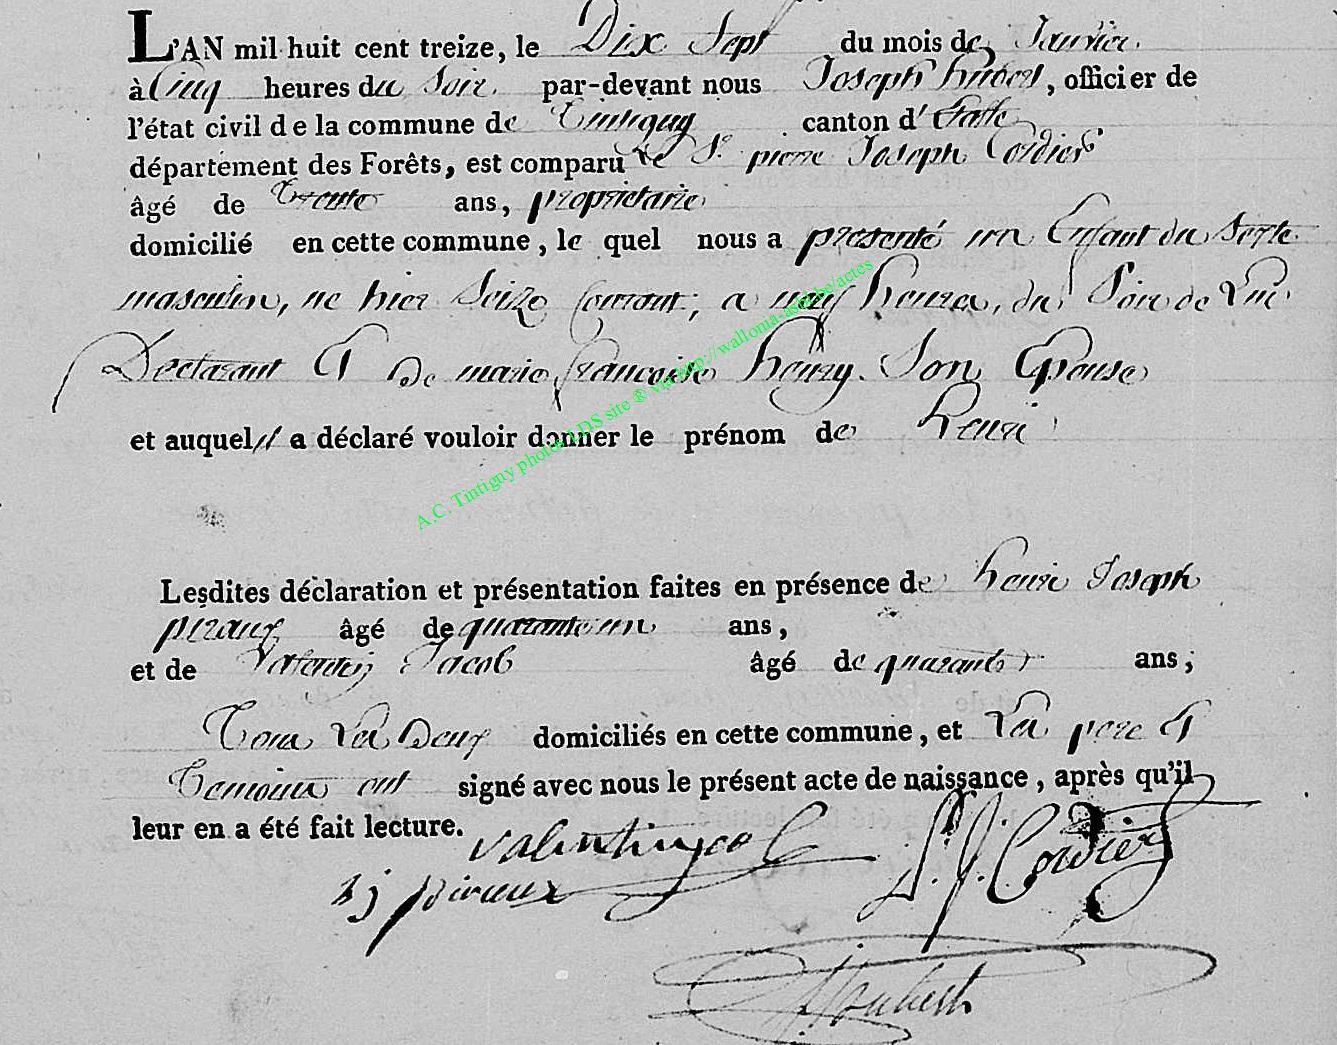 L'AN mil huit cent treize, le Dix Sept du mois de Janvier
à Cinq heures du Soir par-devant nous Joseph hubert, officier de
l'état civil de la commune de Tintigny canton d'Etalle
département des Forêts, est comparu le Sr. pierre Joseph Cordier
âgé de trente ans, propriétaire
domicilié en cette commune, le quel nous a présenté un Enfant du Sexe
masculin, né hier Seize Courant, a neuf heures, du Soir de Lui
Declarant Et De marie françoise henry Son Epouse
et auquel il a déclaré vouloir donner le prénom de henri
A.C. Tintigny photos LDS site ® via http://wallonia-asbl.be/actes
Lesdites déclaration et présentation faites en présence de henri Joseph
piraux âgé de quarante un ans,
et de Valentin Jacob âgé de quarante ans,
Tous Les Deux domiciliés en cette commune, et Les père Et
Temoins ont signé avec nous le présent acte de naissance, après qu'il
leur en a été fait lecture.
valentin jacob P. J. Cordier
hj piraux
Houbert